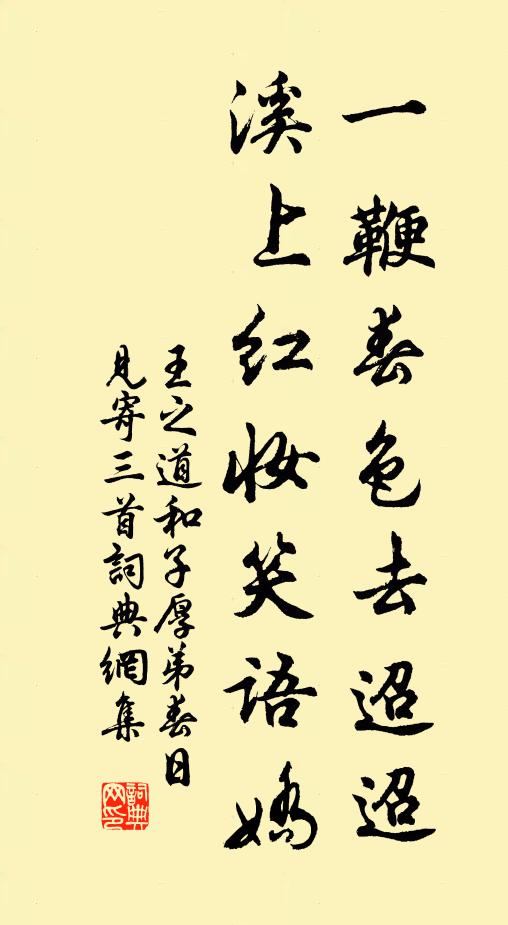 一鞭春色去迢迢
溪上红妆笑语嬌
王之道和子厚弟春日
見寄三首詞典網集
詞典
网印